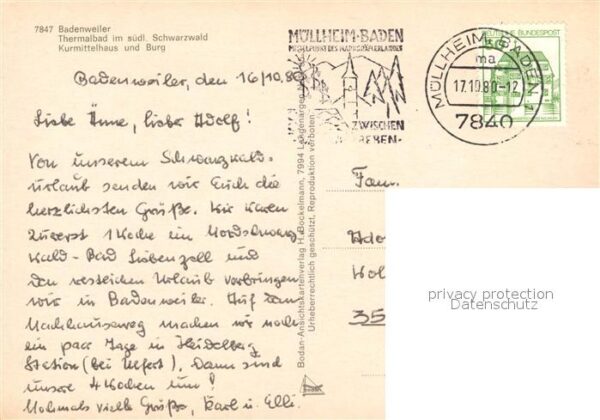 7847 Badenweiler
Thermalbad im südl. Schwarzwald
Kurmittelhaus und Burg
Badenweiler, den 16/10.80
Liebe Änne, lieber Adolf!
Von unserem Schwarzwald-
urlaub senden wir Euch die
herzlichsten Grüße. Wir waren
zuerst 1 Woche im Nordschwarz
wald - Bad Liebenzell und
den restlichen Urlaub verbringen
wir in Badenweiler. Auf dem
Nachhauseweg machen wir noch
ein paar Tage in Heidelberg
Station (bei Ulfert). Dann sind
unsere 4 Wochen um!
Nochmals viele Grüße, Karl u. Elli.
Bodan-Ansichtskartenverlag H. Böckelmann, 7994 Langenargen
Urheberrechtlich geschützt, Reproduktion verboten.
MÜLLHEIM·BADEN
MITTELPUNKT DES MARKGRÄFLERLANDES
ZWISCHEN
REBEN
MÜLLHEIM, BADEN 1
ma
17.10.80-12
7840
DEUTSCHE BUNDESPOST
Fam
Ado
35
privacy protection
Datenschutz